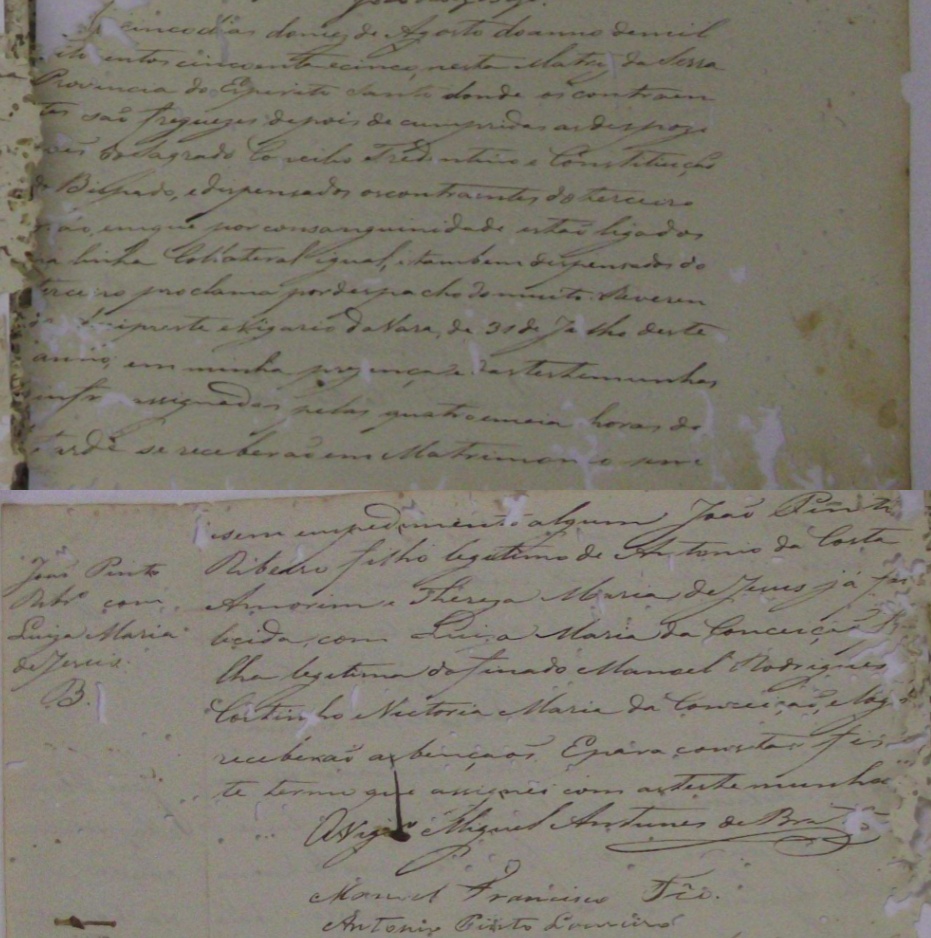 cinco dias do mez de Agosto do anno de mil
oito centos cincoenta e cinco, nesta Matriz da Serra
Provincia do Espirito Santo donde os contraen
tes são freguezes depois de cumpridas as despozi
ções do Sagrado Concilho Tredentino e Constituição
do Bispado, e dispensados os contraentes do terceiro
gráo, em que por consanguinidade estão ligados
na linha Collateral igual, e tambem dispensados do
terceiro proclama por despacho do muito Reveren
do Arcipreste e Vigario da Vara, de 31 de Julho deste
anno, em minha prezença e das testemunhas
infra assignadas pelas quatro e meia horas da
tarde se receberão em Matrimonio
João Pinto
Rib.º com
Luiza Maria
de Jezus.
B.
e sem empedimento algum João Pinto
Ribeiro filho legitimo de Antonio da Costa
Amorim e Thereza Maria de Jezus já fal
lecida, com Luiza Maria da Conceição fi
lha legitima do finado Manoel Rodrigues
Coitinho e Victoria Maria da Conceição, e logo
receberão as bençaõs. E para constar fiz es
te termo que assignei com as testemunhas
O Vigr.º Miguel Antunes de Br
Manoel Francisco
Antonio Pinto Loureiro